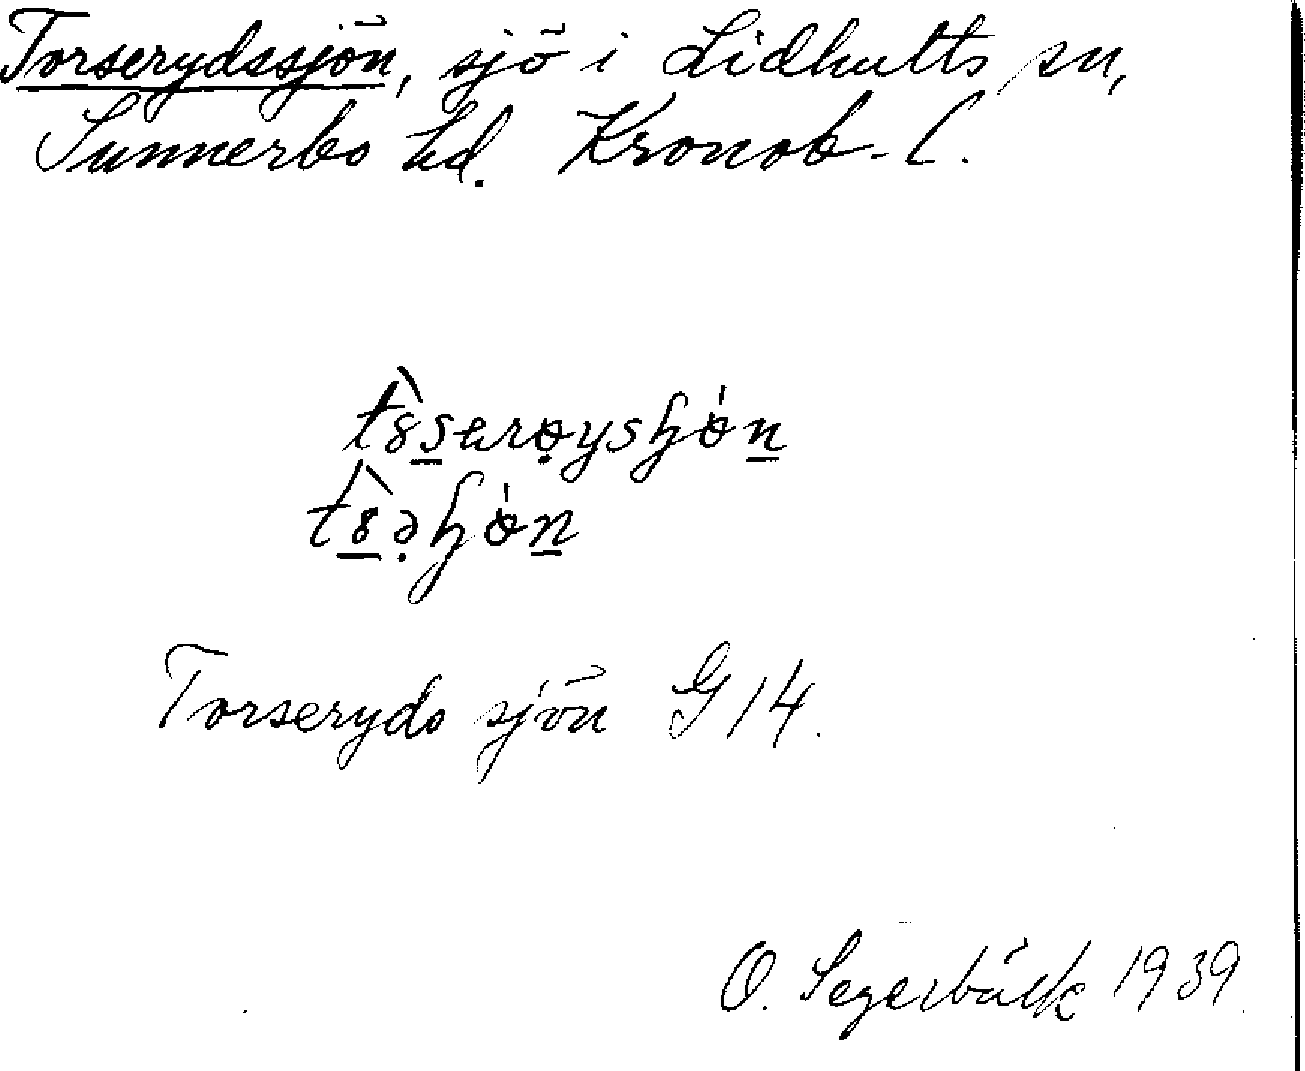 Torserydssjön, sjö i Lidhults sn,
Sunnerbo hd. Kronob. l.
Torseryds sjön G 14.
O. Segerbäck 1939.